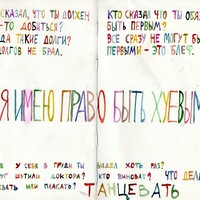 СКАЗАЛ, ЧТО ТЫ ДОЛЖЕН
-ТО ДОБИТЬСЯ?
ДА ТАКИЕ ДОЛГИ?
ДОЛГОВ НЕ БРАЛ.
КТО СКАЗАЛ ЧТО ТЫ ОБЯЗ
БЫТЬ ПЕРВЫМ?
ВСЕ СРАЗУ НЕ МОГУТ БЫ
ПЕРВЫМИ - ЭТО БЛЕФ.
Я ИМЕЮ ПРАВО БЫТЬ ХУЕВЫМ
У СЕБЯ В ГРУДИ ТЫ
ШУТИЛИ ДОКТОРА?
ВАТЬ ИЛИ ПЛАКАТЬ?
ВИДЕЛ ХОТЬ РАЗ?
КТО ВИНОВАТ? ЧТО ДЕЛА
ТАНЦЕВАТЬ